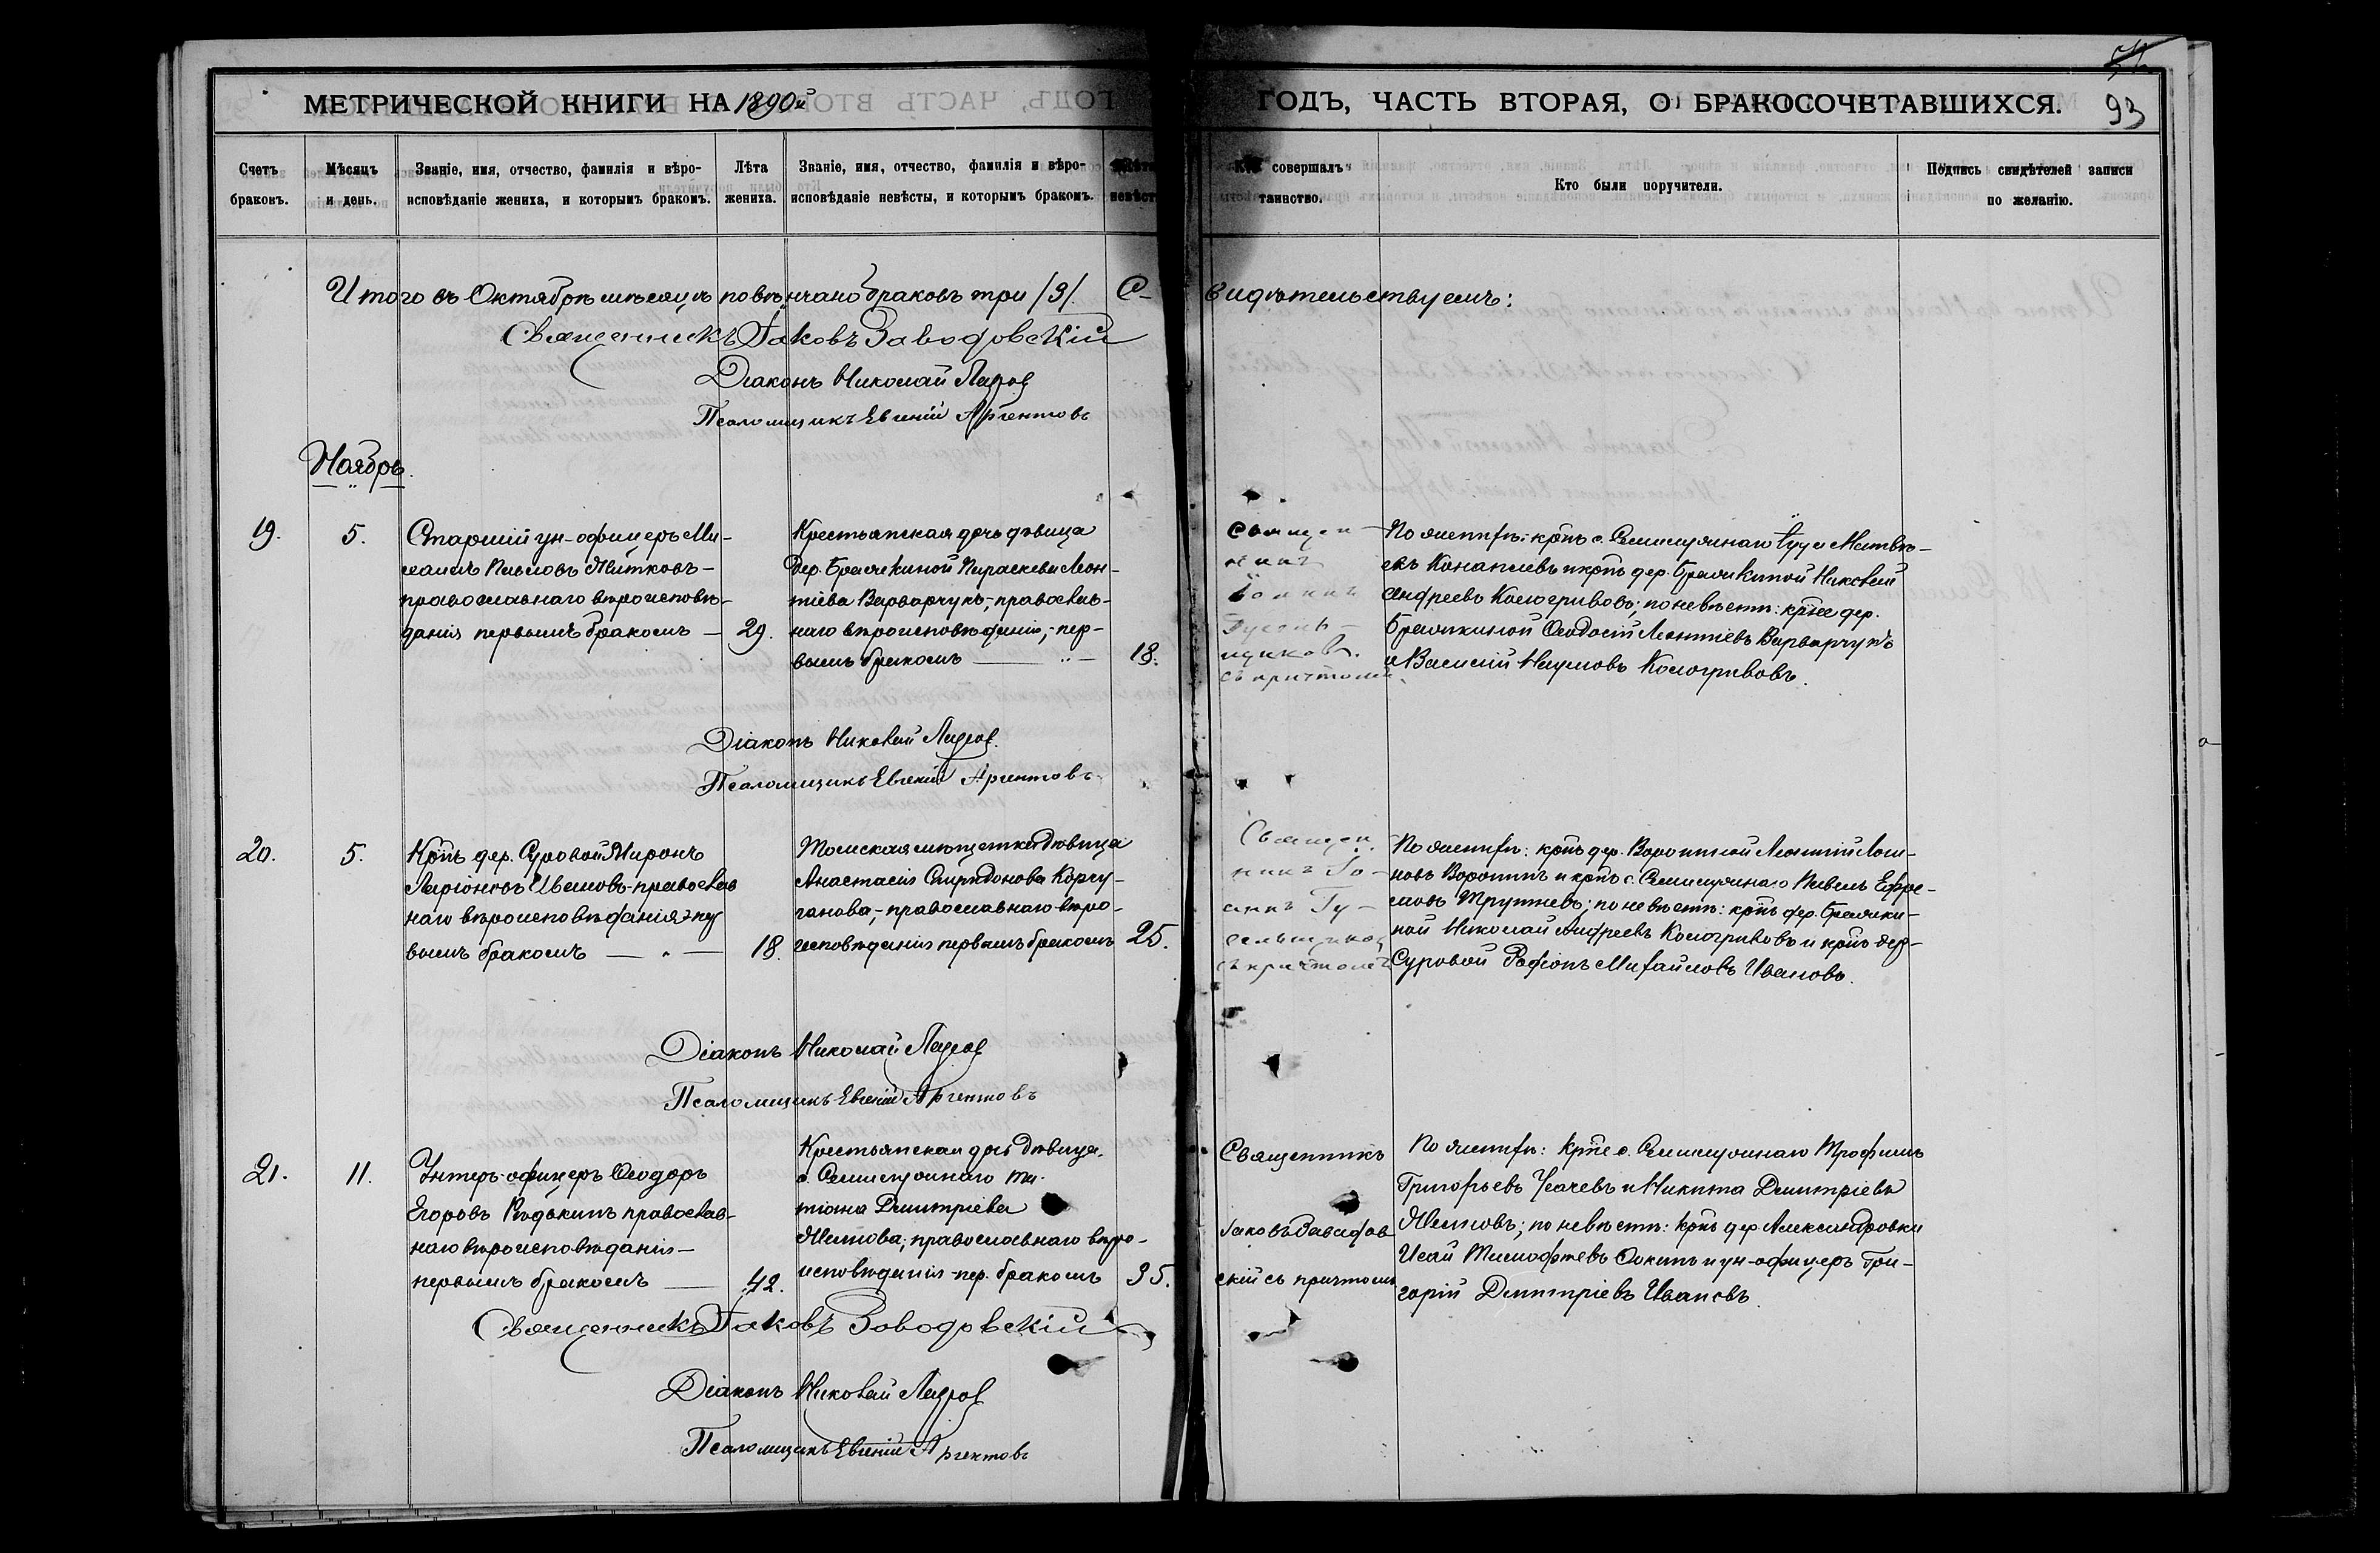 МЕТРИЧЕСКОЙ КНИГИ НА 1890й ГОДЪ, ЧАСТЬ ВТОРАЯ, О БРАКОСОЧЕТАВШИХСЯ.
93
Счетъ браковъ.
Мѣсяцъ и день.
Званіе, имя, отчество, фамилія и вѣро-
исповѣданіе жениха, и которымъ бракомъ.
Лѣта жениха.
Званіе, имя, отчество, фамилія и вѣро-
исповѣданіе невѣсты, и которымъ бракомъ.
Лѣта невѣст
Кто совершалъ
таинство.
Кто были поручители.
Подпись свидѣтелей записи
по желанію.
Итого въ Октябрѣ мѣсяцѣ повѣнчано браковъ три /3/. С-
видѣтельствуемъ:
Священникъ Іаковъ Заводовскій
Діаконъ Николай Лавров
Псаломщикъ Евгеній Аргентовъ
Ноябрь.
19.
5.
Старшій ун-офицеръ Ми-
хаилъ Павловъ Житковъ-
православнаго вѣроисповѣ-
данія первымъ бракомъ —
29.
Крестьянская дочь дѣвица
дер. Брагикиной Параскева Леон-
тіева Варварчукъ, православ-
наго вѣроисповѣданія, пер-
вымъ бракомъ
18.
Священ-
никъ
Іоаннъ
Гусель-
щиковъ
съ причтомъ.
По женихѣ: крнъ с. Семилужнаго Матвѣ-
евъ Конаплевъ и крнъ дер. Николай
Андреевъ Кологривовъ; по невѣстѣ: крне дер.
Ѳеодосій Леонтіевъ Варварчукъ
и Василій Наумовъ Кологривовъ.
Діаконъ Николай Лавров.
Псаломщикъ Евгеній Аргентовъ
20.
5.
Крнъ дер. Суровой Миронъ
Ларіоновъ Ивановъ-православ
наго вѣроисповѣданія
вымъ бракомъ
18.
Томская мѣщанка дѣвица
Анастасія Спиридонова Корчу-
ганова,-православнаго вѣро-
исповѣданія первымъ бракомъ
25.
Священ
никъ Іо-
аннъ Гу-
сельщиков
съ причтомъ
По женихѣ: крнъ дер. Ворониной Леонтій
новъ Воронинъ и крнъ с. Семилужнаго Павелъ Ефре-
мовъ Трутневъ; по невѣстѣ: крнъ дер.
ной Николай Андреевъ Кологривовъ и крнъ дер-
Суровой Родіонъ Михайловъ Ивановъ.
Діаконъ Николай Лавров
Псаломщикъ Евгеній Аргентовъ
21.
11.
Унтеръ-офицеръ Ѳеодоръ
Егоровъ Рѣдькинъ православ-
наго вѣроисповѣданія-
первымъ бракомъ
42.
Крестьянская дочь дѣвица
с. Семилужнаго Та-
тіана Димитріева
православнаго вѣро-
исповѣданія-пер. бракомъ
35.
Священникъ
Іаковъ Заводов
скій съ причтомъ
По женихѣ: крне с. Семилужнаго Трофимъ
Григорьевъ Усачевъ и Никита Димитріевъ
по невѣстѣ: крнъ дер. Александровки
Исай Тимофѣевъ и ун-офицеръ Гри-
горій Димитріевъ Ивановъ.
Священникъ Іаковъ Заводовскій
Діаконъ Николай Лавров
Псаломщикъ Евгеній Аргентовъ